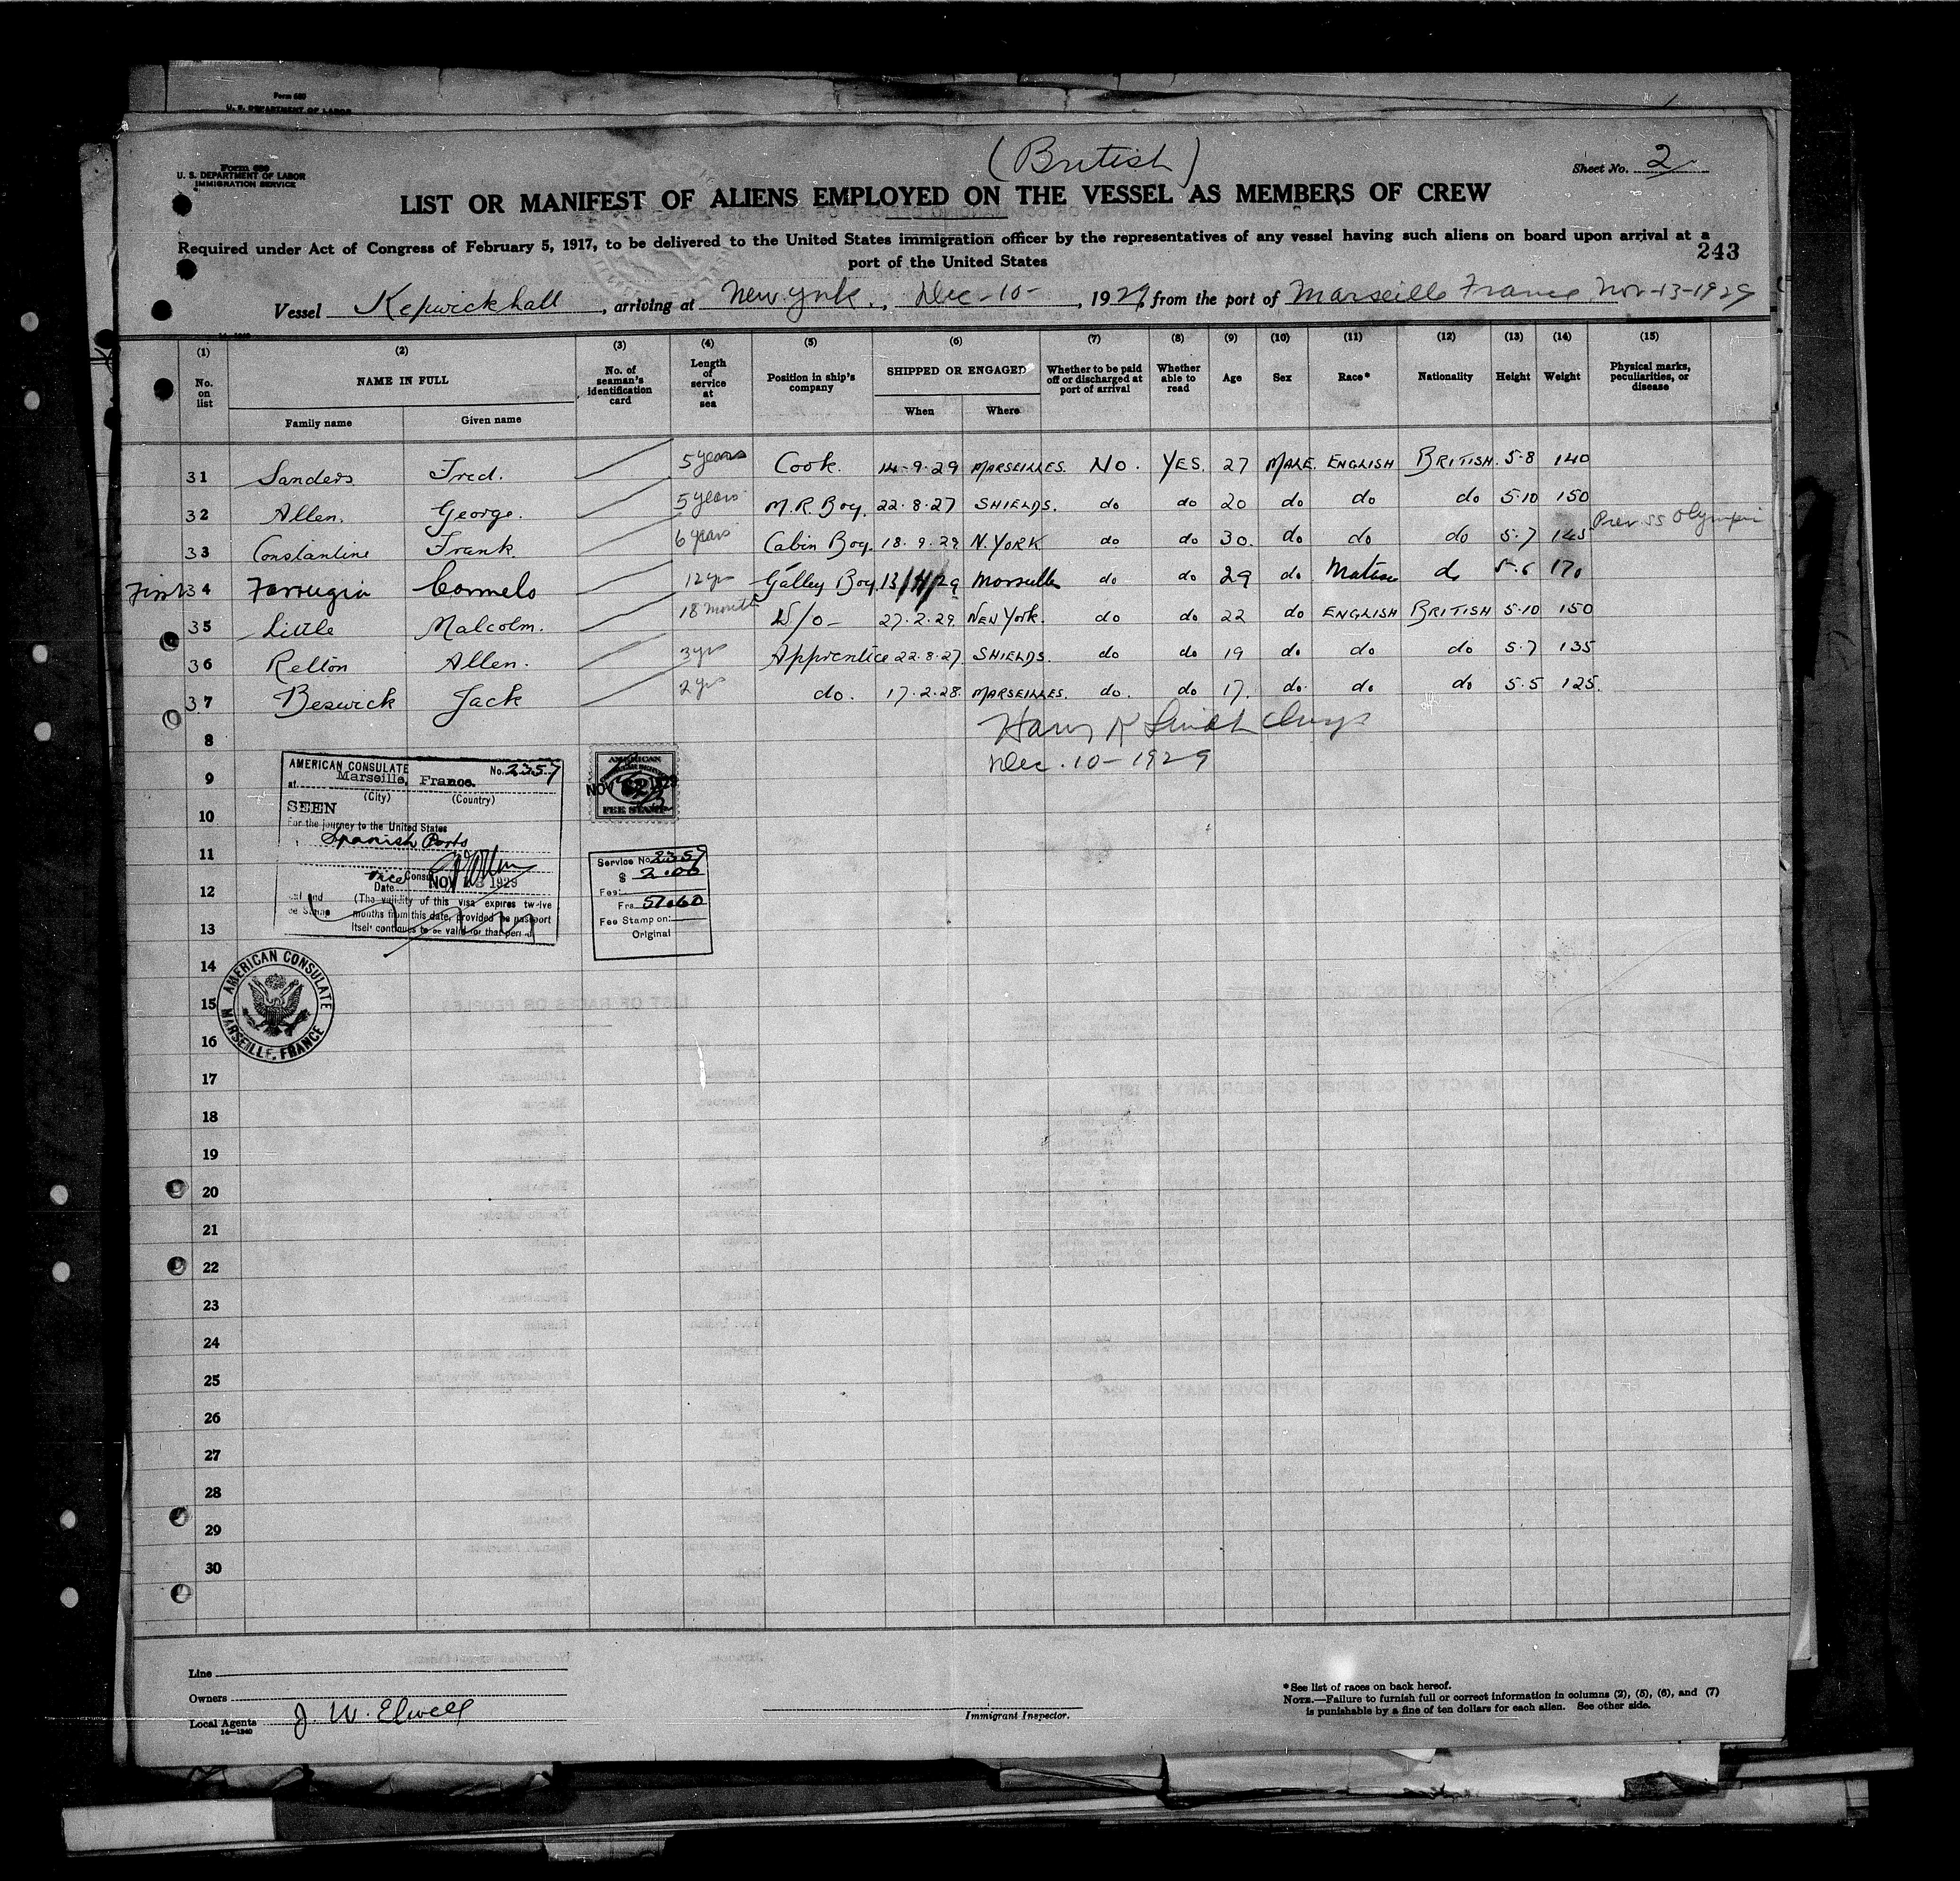 Form 680
U. S. DEPARTMENT OF LABOR
Form 680
U. S. DEPARTMENT OF LABOR
IMMIGRATION SERVICE
(British)
Sheet No. 2
LIST OR MANIFEST OF ALIENS EMPLOYED ON THE VESSEL AS MEMBERS OF CREW
Required under Act of Congress of February 5, 1917, to be delivered to the United States immigration officer by the representatives of any vessel having such aliens on board upon arrival at a
port of the United States
243
Vessel Kepwickhall, arriving at New York., Dec-10-, 1929, from the port of Marseille France Nov-13-1929
(1) (2) (3) (4) (5) (6) (7) (8) (9) (10) (11) (12) (13) (14) (15)
No. on list NAME IN FULL No. of seaman's identification card Length of service at sea Position in ship's company SHIPPED OR ENGAGED Whether to be paid off or discharged at port of arrival Whether able to read Age Sex Race* Nationality Height Weight Physical marks, peculiarities, or disease
Family name Given name When Where
31 Sanders Fred. 5 years Cook. 14-9-29 MARSEILLES. No. YES. 27 MALE. ENGLISH BRITISH. 5-8 140
32 Allen. George. 5 years M.R. Boy. 22.8.27 SHIELDS. do do 20 do do do 5-10 150
33 Constantine Frank 6 years Cabin Boy. 18.9.29 N.YORK do do 30. do do do 5-7 145 Prev SS Olympic
First 34 Farrugia Carmelo 12 yrs Galley Boy 13/11/29 Marseille do do 29 do Maltese do 5-6 170
35 Little Malcolm. 18 months W/o- 27.2.29 NEW YORK. do do 22 do ENGLISH BRITISH 5-10 150
36 Relton Allen. 3 yrs Apprentice 22.8.27 SHIELDS. do do 19 do do do 5-7 135
37 Beswick Jack 2 yrs do. 17.2.28 MARSEILLES. do. do 17. do do do 5-5 125.
Dec. 10-1929
8
9
10
11
12
13
14
15
16
17
18
19
20
21
22
23
24
25
26
27
28
29
30
AMERICAN CONSULATE No. 2357
at Marseille, France.
(City) (Country)
SEEN
For the journey to the United States
Spanish Ports
Vice Consul
Date NOV 13 1929
(The validity of this visa expires twelve
months from this date, provided the passport
itself continues to be valid for that period)
AMERICAN
FEE STAMP
Service No. 2357
$ 2.00
Fee:
Frs 51.60
Fee Stamp on:
Original
AMERICAN CONSULATE
MARSEILLE, FRANCE
Line
Owners
Local Agents J. W. Elwell
14-1240
Immigrant Inspector.
*See list of races on back hereof.
NOTE.—Failure to furnish full or correct information in columns (2), (5), (6), and (7)
is punishable by a fine of ten dollars for each alien. See other side.